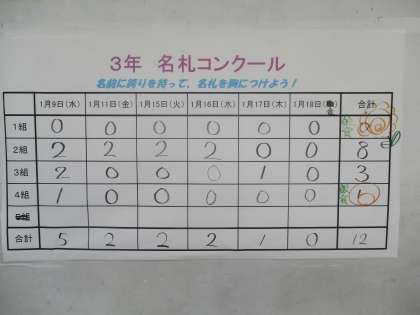 3年 名札コンクール
名前に誇りを持って、名札を胸につけよう！
1月9日(水) 1月11日(金) 1月15日(火) 1月16日(水) 1月17日(木) 1月18日(金) 合計
1組 0 0 0 0 0 0 0
2組 2 2 2 2 0 0 8
3組 2 0 0 0 1 0 3
4組 1 0 0 0 0 0 1
5組
合計 5 2 2 2 1 0 12